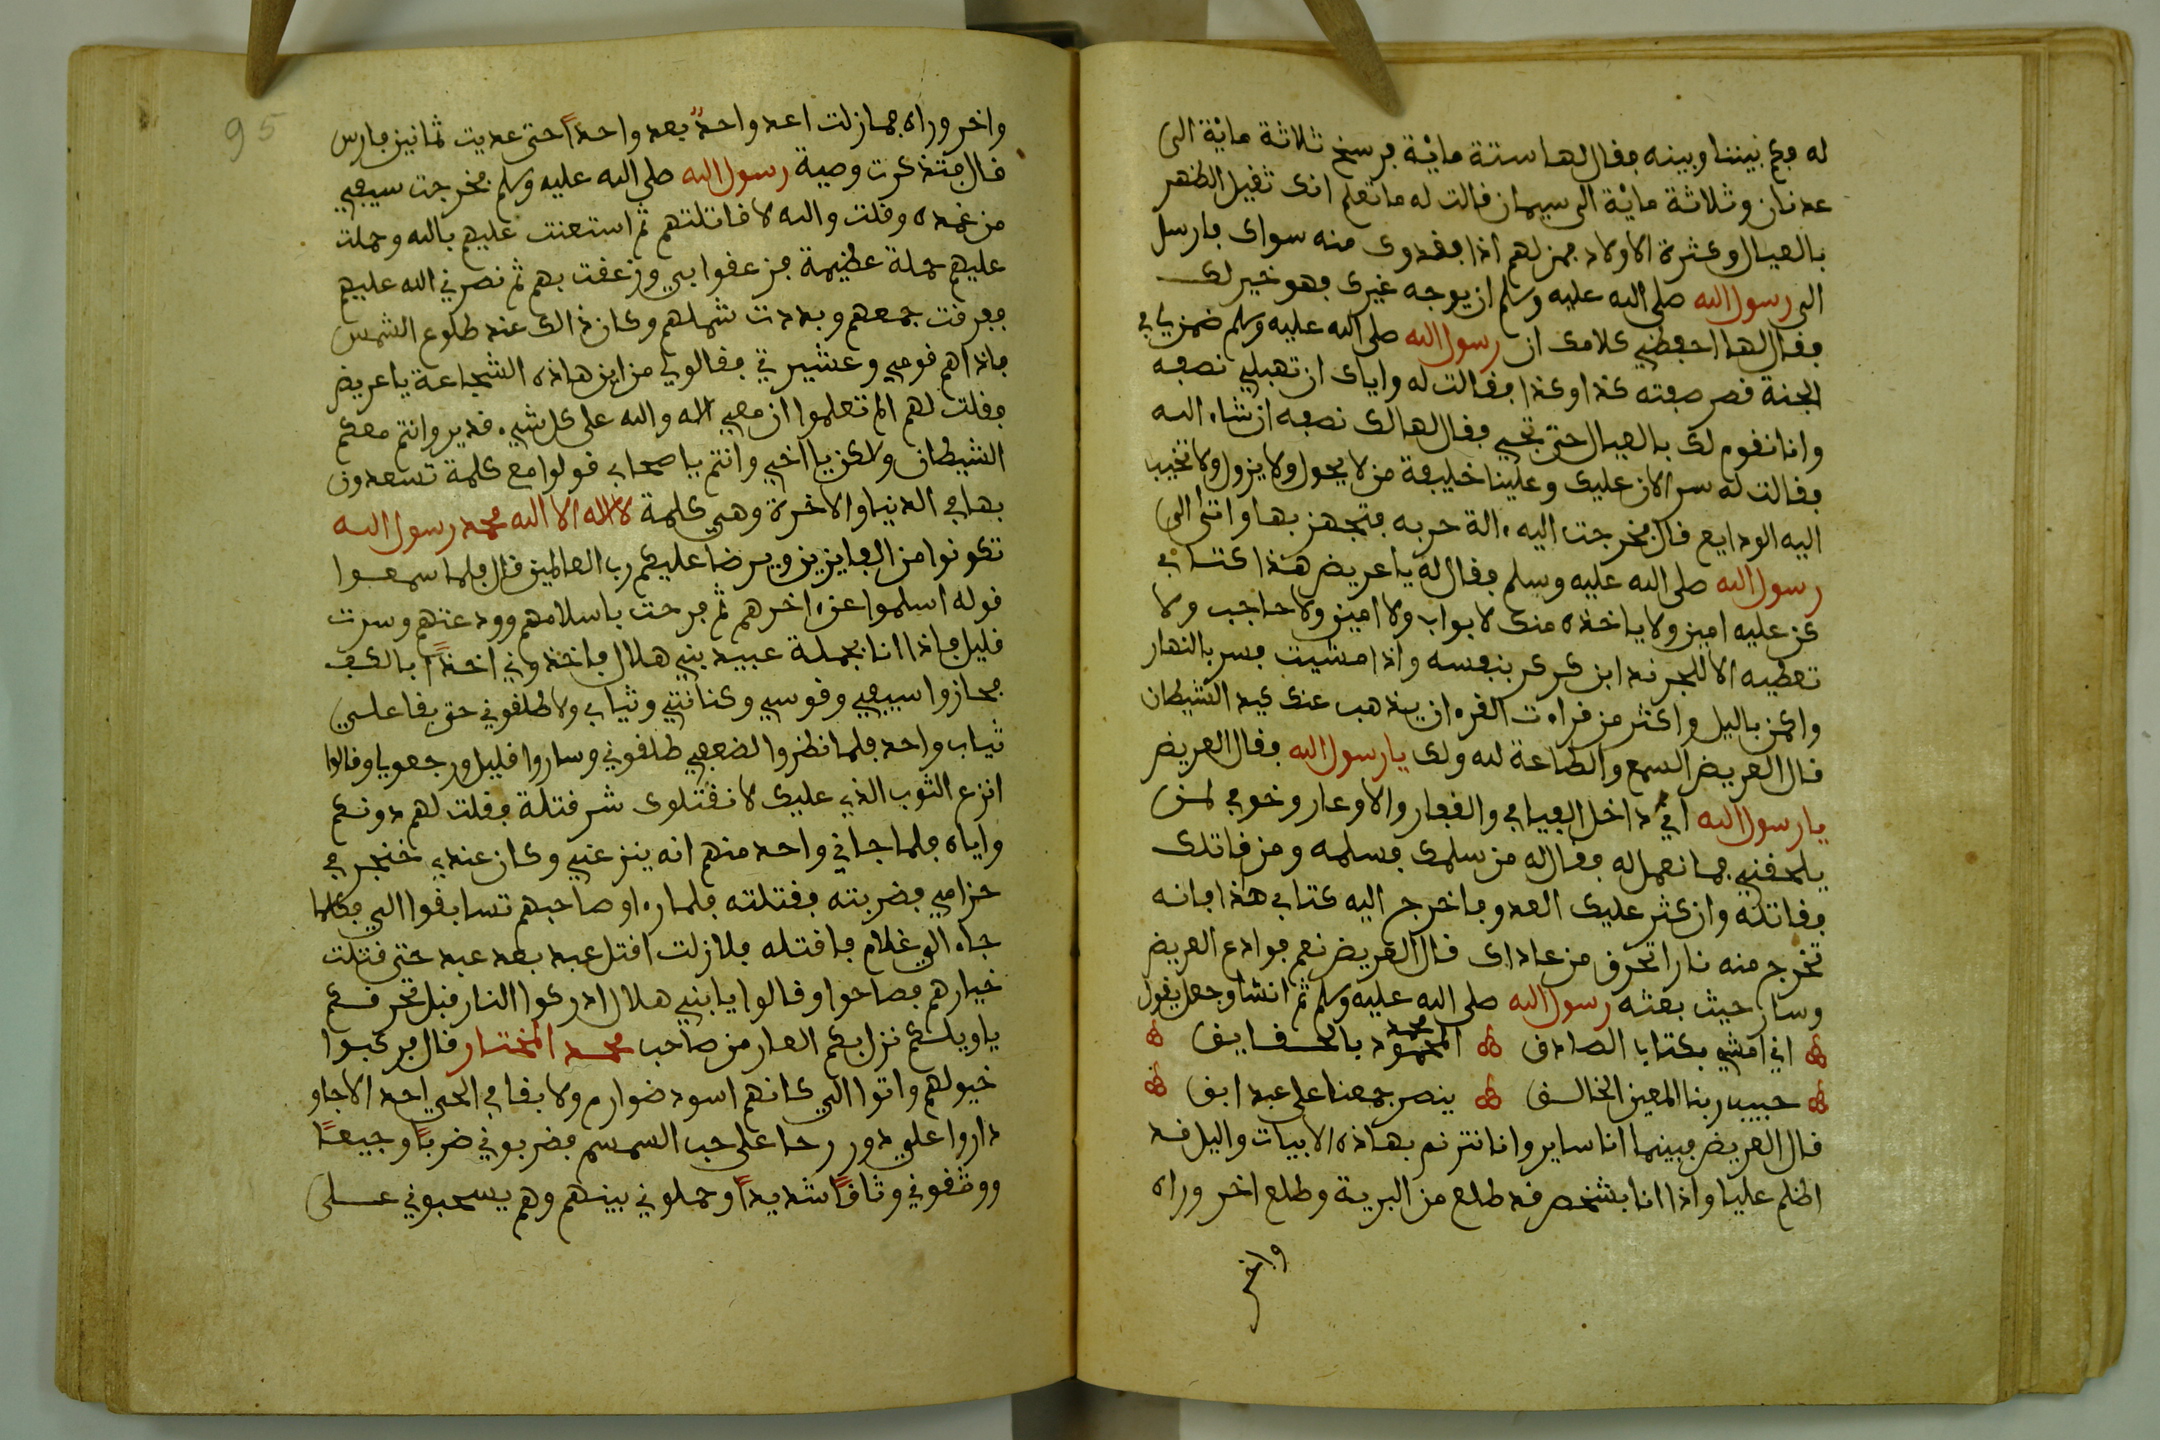 له فكم بيننا وبينه فقال لها ستة ماية فرسخ ثلاثة ماية الى
عدنان وثلاثة ماية الى سيمان قالت له ما تعلم انك ثقيل الظهر
بالعيال وكثرة الاولاد فمن لهم اذا فقدوك منه سواك فارسل
الى رسول الله صلى الله عليه وسلم ان يوجه غيرك فهو خير لك
فقال لها احفظي كلامك ان رسول الله صلى الله عليه وسلم ضمن لي في
الجنة قصر صفته كذا وكذا فقالت له واياك ان تهبلي نصفه
وانا نقوم لك بالعيال حتى تجي فقال لها لك نصفه ان شاء الله
فقالت له سر الان عليك وعلينا خليفة من لا يحول ولا يزول ولا تخيب
اليه الودايع قال فخرجت اليه ءالة حربه فتجهز بها واتى الى
رسول الله صلى الله عليه وسلم فقال له يا عريض هذا كتابي
كن عليه امين ولا ياخذه منك لا بواب ولا امين ولا حاجب ولا
تعطيه الا للجرند ابن كركر بنفسه واذا مشيت فسر بالنهار
واكمن باليل واكثر من قراءت القرءان يذهب عنك كيد الشيطان
قال العريض السمع والطاعة لله ولك يا رسول الله فقال العريض
يا رسول الله اني داخل الفيافي والقفار والاوعار وخوفي لمن
يلحقني فما نعمل له فقال له من سلمك فسلمه ومن قاتلك
فقاتله وان كثر عليك العدو فاخرج اليه كتابي هذا فانه
تخرج منه نارا تحرق من عاداك قال العريض نعم فوادع العريض
وسار حيث بعثه رسول الله صلى الله عليه وسلم ثم انشا وجعل يقول
اني امشي بكتابا الصادق محمد المحمود بالحقايق
حبيب ربنا المعين الخالق ينصر جمعنا على عبد ابق
قال العريض فبينما انا ساير وانا نترنم بهاذه الابيات واليل قد
اظلم عليا واذا انا بشخص قد طلع من البرية وطلع اخر وراه
واخر
95
واخر وراه فما زلت اعد واحدا بعد واحدا حتى عديت ثمانين فارس
قال فتذكرت وصية رسول الله صلى الله عليه وسلم فخرجت سيفي
من غمده وقلت والله لا قاتلتهم ثم استعنت عليهم بالله وحملت
عليهم حملة عظيمة فزعقوا بي وزعقت بهم ثم نصرني الله عليهم
ففرقت جمعهم وبددت شملهم وكان ذالك عند طلوع الشمس
فاذا هم قومي وعشيرتي فقالو لي من اين هاذه الشجاعة يا عريض
فقلت لهم الم تعلموا ان معي الله والله على كل شيء قدير وانتم معكم
الشيطان ولاكن يا اخي وانتم يا صحابي قولوا مع كلمة تسعدون
بها في الدنيا والاخرة وهي كلمة لا اله الا الله محمد رسول الله
تكونوا من الفايزين ويرضا عليكم رب العالمين قال فلما سمعوا
قوله اسلموا عن ءاخرهم ثم فرحت باسلامهم وودعتهم وسرت
قليل فاذا انا بجملة عبيد بني هلال فاخذوني اخذا بالكف
فحازوا سيفي وقوسي وكنانتي وثيابي ولا طلقوني حتى بقا علي
ثياب واحد فلما نظروا لضعفي طلقوني وساروا قليل ورجعو يا وقالوا
انزع الثوب الذي عليك لا نقتلوك شر قتلة فقلت لهم دونكم
واياه فلما جاني واحد منهم انه ينزعني وكان عندي خنجر في
حزامي فضربته فقتلته فلما راو صاحبهم تسابقوا الي فكلما
جاء الي غلام فاقتله فلا زلت اقتل عبد بعد عبد حتى قتلت
خيارهم فصاحوا وقالوا يا بني هلال ادركوا النار قبل تحرقكم
يا ويلكم نزل بكم العار من صاحب محمد المختار قال فركبوا
خيولهم واتوا الي كانهم اسود ضوارم ولا بقا في الحي احد الا جاو
داروا علي دور رحا على حب السمسم فضربوني ضربا وجيعا
ووثقوني وثاقا شديدا وحملوني بينهم وهم يسحبوني على